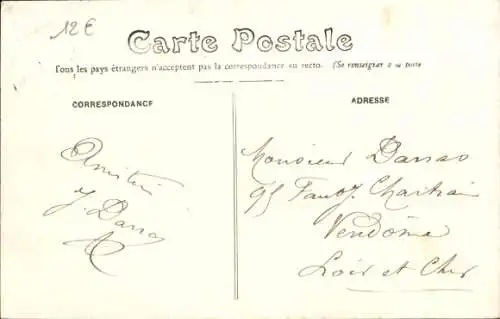 12€
Carte Postale
Tous les pays étrangers n'acceptent pas la correspondance au recto. (Se renseigner à la poste
CORRESPONDANCE
ADRESSE
J. Darras
Monsieur Darras
95 Faubg Chartrain
Vendôme
Loir et Cher